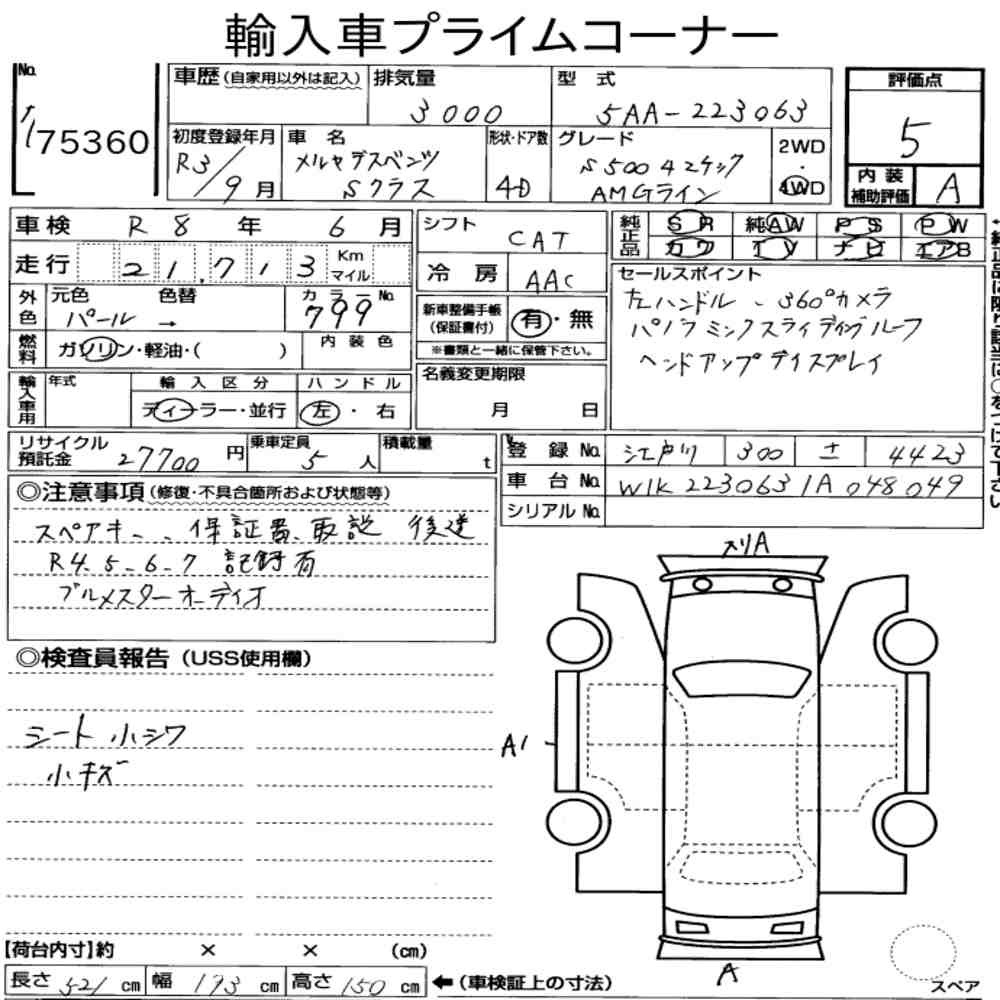 輸入車プライムコーナー
No.
75360
車歴 (自家用以外は記入)
排気量
3000
型 式
5AA-223063
評価点
5
内装補助評価
A
初度登録年月
R3/9月
車名
メルセデスベンツ
Sクラス
形状・ドア数
4D
グレード
S500 4マチック
AMGライン
2WD
・
4WD
車検 R8年 6月
走行 21,713 Km マイル
シフト
CAT
冷房
AAC
純正品
SR 純AW PS PW
カワ TV ナビ エアB
外色
元色 色替
パール →
カラーNo.
799
燃料
ガソリン・軽油・( )
内装色
新車整備手帳
(保証書付)
有・無
※書類と一緒に保管下さい。
セールスポイント
左ハンドル、360°カメラ
パノラミックスライディングルーフ
ヘッドアップディスプレイ
輸入車用
年式
輸入区分
ディーラー・並行
ハンドル
左・右
名義変更期限
月 日
リサイクル預託金 27700円
乗車定員 5人
積載量 t
登録No. 江戸川 300 4423
車台No. W1K2230631A048049
シリアルNo.
◎注意事項 (修復・不具合箇所および状態等)
スペアキー、保証書、取説 後送
R4.5.6.7 記録有
ブルメスターオーディオ
◎検査員報告 (USS使用欄)
シート小シワ
小キズ
スリA
A1
A
【荷台内寸】約 × × (cm)
長さ 521 cm 幅 193 cm 高さ 150 cm ←(車検証上の寸法)
スペア